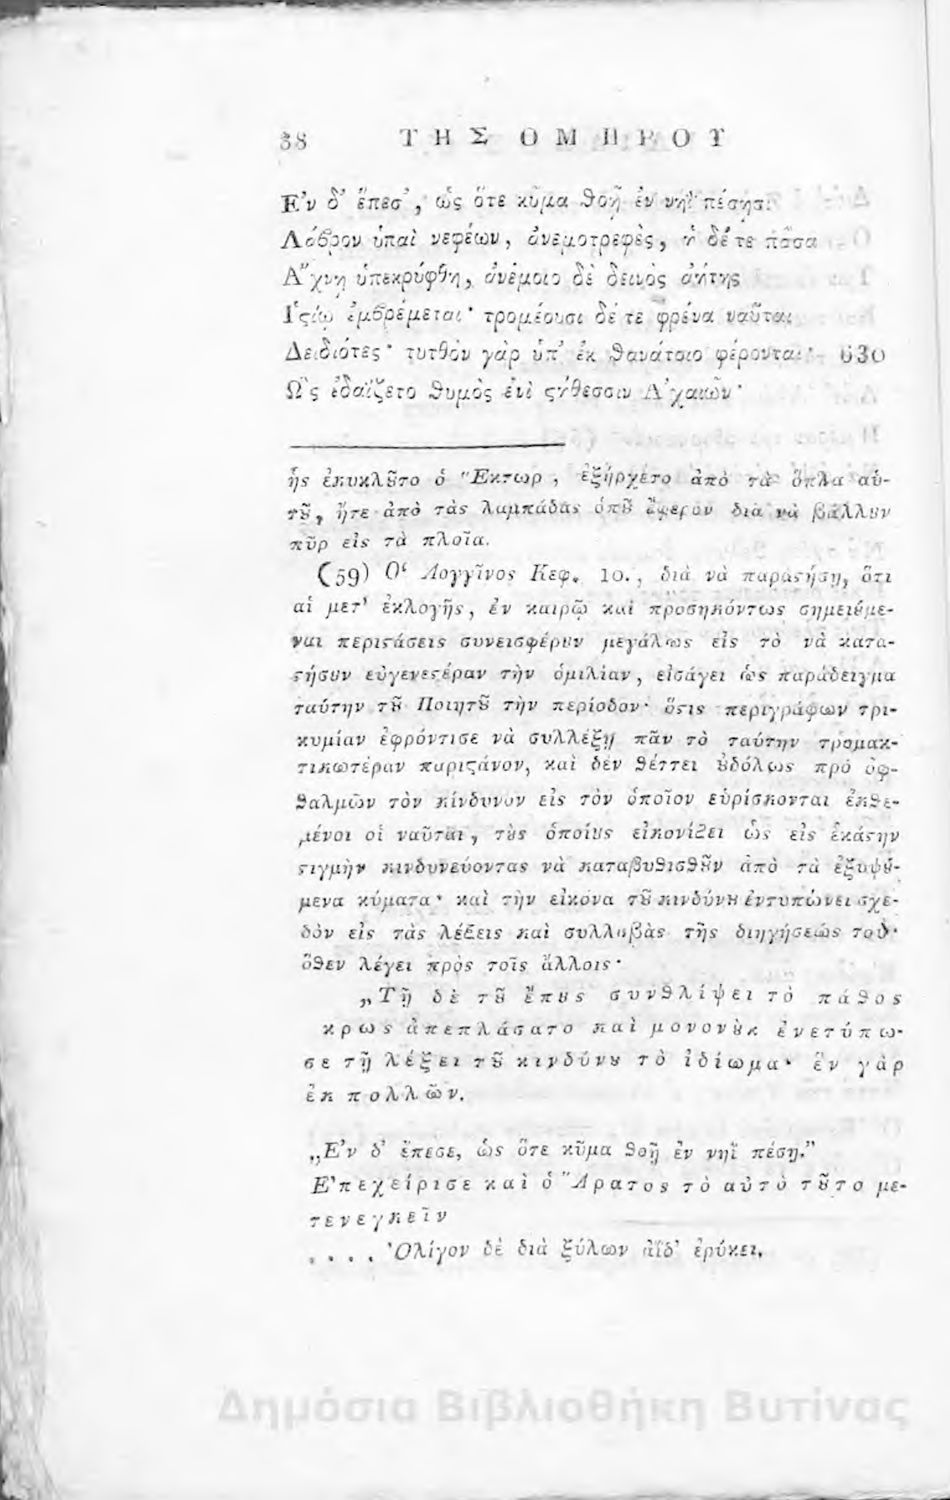 38 ΤΗΣ ΟΜΗΡΟΥ
Ε᾿ν δ᾿ ἔπεσ᾿, ὡς ὅτε κῦμα θοῇ ἐν νηῒ πέσῃσι
Λάβρον ὑπαὶ νεφέων, ἀνεμοτρεφὲς, ἡ δέ τε πᾶσα
Α῎χνῃ ὑπεκρύφθη, ἀνέμοιο δὲ δεινὸς ἀήτης
Ι᾿ϛίῳ ἐμβρέμεται· τρομέουσι δέ τε φρένα ναῦται
Δειδιότες· τυτθὸν γὰρ ὑπ᾿ ἐκ θανάτοιο φέρονται· 630
Ω῝ς ἐδαΐζετο θυμὸς ἐνὶ ϛήθεσσιν Α᾿χαιῶν·
ἧς ἐκυκλȣ͂το ὁ Ἕκτωρ, ἐξήρχετο ἀπὸ τὰ ὅπλα αὑ-
τȣ͂, ἤτε ἀπὸ τὰς λαμπάδας ὁπȣ͂ ἔφερον διὰ νὰ βάλλȣν
πῦρ εἰς τὰ πλοῖα.
(59) Ο῾ Λογγῖνος Κεφ. 10., διὰ νὰ παραϛήσῃ, ὅτι
αἱ μετ᾿ ἐκλογῆς, ἐν καιρῷ καὶ προσηκόντως σημειȣ́με-
ναι περιϛάσεις συνεισφέρȣν μεγάλως εἰς τὸ νὰ κατα-
ϛήσȣν εὐγενεϛέραν τὴν ὁμιλίαν, εἰσάγει ὡς παράδειγμα
ταύτην τȣ͂ Ποιητȣ͂ τὴν περίοδον· ὅϛις περιγράφων τρι-
κυμίαν ἐφρόντισε νὰ συλλέξῃ πᾶν τὸ ταύτην τρομακ-
τικωτέραν παριϛάνον, καὶ δὲν θέττει ȣ̓δόλως πρὸ ὀφ-
θαλμῶν τὸν κίνδυνον εἰς τὸν ὁποῖον εὑρίσκονται ἐκθε-
μένοι οἱ ναῦται, τȣ̀ς ὁποίȣς εἰκονίζει ὡς εἰς ἑκάϛην
ϛιγμὴν κινδυνεύοντας νὰ καταβυθισθȣ͂ν ἀπὸ τὰ ἐξυψȣ́-
μενα κύματα· καὶ τὴν εἰκόνα τȣ͂ κινδύνȣ ἐντυπώνει σχε-
δὸν εἰς τὰς λέξεις καὶ συλλαβὰς τῆς διηγήσεώς τȣ·
ὅθεν λέγει πρὸς τοῖς ἄλλοις·
„Τῇ δὲ τȣ͂ ἔπȣς συνθλίψει τὸ πάθος
κρως ἀπεπλάσατο καὶ μονονȣ̀κ ἐνετύπω-
σε τῇ λέξει τȣ͂ κινδύνȣ τὸ ἰδίωμα· ἓν γὰρ
ἐκ πολλῶν.
„Ε᾿ν δ᾿ ἔπεσε, ὡς ὅτε κῦμα θοῇ ἐν νηῒ πέσῃ.”
Ε᾿πεχείρισε καὶ ὁ Ἄρατος τὸ αὐτὸ τȣ͂το με-
τενεγκεῖν
. . . . Ὀλίγον δὲ διὰ ξύλων ἄϊδ᾿ ἐρύκει,
Δημόσια Βιβλιοθήκη Βυτίνας